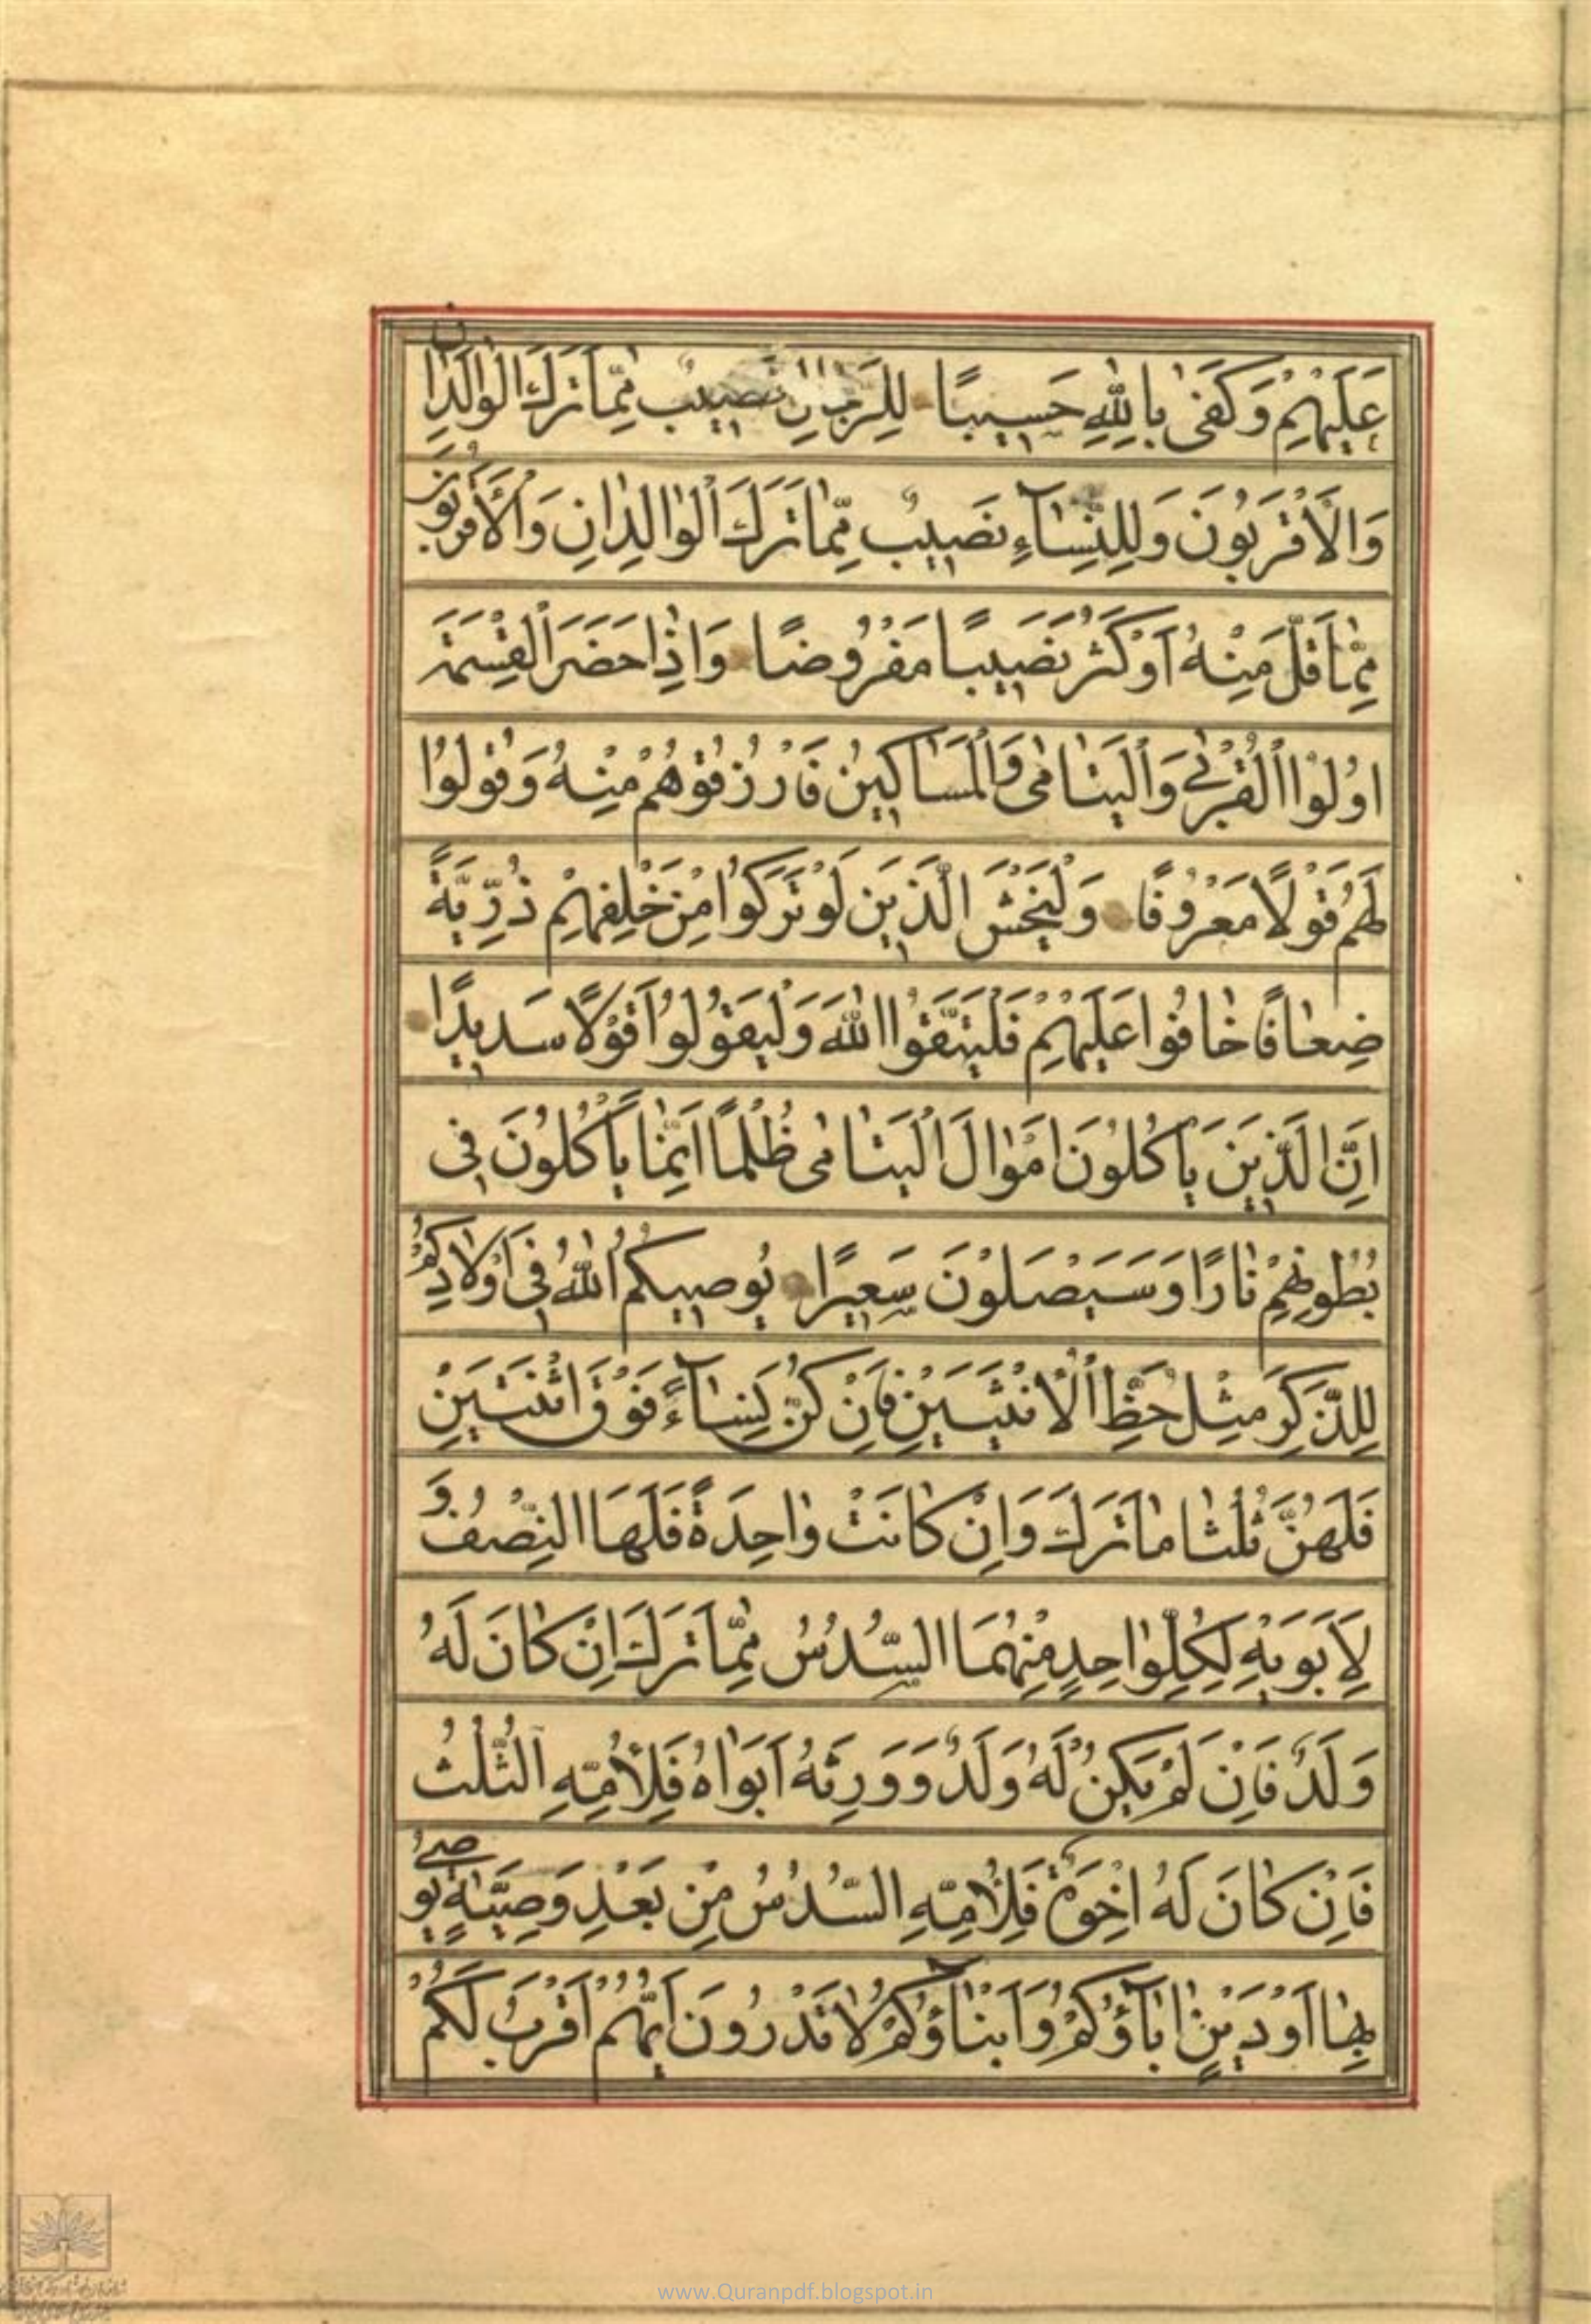 عَلَيْهِمْ وَكَفَىٰ بِاللّٰهِ حَسِيبًا لِلرِّجٰالِ نَصِيبٌ مِمّٰا تَرَكَ الْوٰالِدٰانِ
وَالْاَقْرَبُونَ وَلِلنِّسٰآءِ نَصِيبٌ مِمّٰا تَرَكَ الْوٰالِدٰانِ وَالْاَقْرَبُونَ
مِمّٰا قَلَّ مِنْهُ اَوْ كَثُرَ نَصِيبًا مَفْرُوضًا وَاِذٰا حَضَرَ الْقِسْمَةَ
اُولُوا الْقُرْبىٰ وَالْيَتٰامىٰ وَالْمَسٰاكِينُ فَارْزُقُوهُمْ مِنْهُ وَقُولُوا
لَهُمْ قَوْلًا مَعْرُوفًا وَلْيَخْشَ الَّذِينَ لَوْ تَرَكُوا مِنْ خَلْفِهِمْ ذُرِّيَّةً
ضِعٰافًا خٰافُوا عَلَيْهِمْ فَلْيَتَّقُوا اللّٰهَ وَلْيَقُولُوا قَوْلًا سَدِيدًا
اِنَّ الَّذِينَ يَاْكُلُونَ اَمْوٰالَ الْيَتٰامىٰ ظُلْمًا اِنَّمٰا يَاْكُلُونَ فِي
بُطُونِهِمْ نٰارًا وَسَيَصْلَوْنَ سَعِيرًا يُوصِيكُمُ اللّٰهُ فِي اَوْلٰادِكُمْ
لِلذَّكَرِ مِثْلُ حَظِّ الْاُنْثَيَيْنِ فَاِنْ كُنَّ نِسٰآءً فَوْقَ اثْنَتَيْنِ
فَلَهُنَّ ثُلُثٰا مٰا تَرَكَ وَاِنْ كٰانَتْ وٰاحِدَةً فَلَهَا النِّصْفُ وَ
لِاَبَوَيْهِ لِكُلِّ وٰاحِدٍ مِنْهُمَا السُّدُسُ مِمّٰا تَرَكَ اِنْ كٰانَ لَهُ
وَلَدٌ فَاِنْ لَمْ يَكُنْ لَهُ وَلَدٌ وَوَرِثَهُ اَبَوٰاهُ فَلِاُمِّهِ الثُّلُثُ
فَاِنْ كٰانَ لَهُ اِخْوَةٌ فَلِاُمِّهِ السُّدُسُ مِنْ بَعْدِ وَصِيَّةٍ يُوصىٰ
بِهٰا اَوْ دَيْنٍ اٰبٰآؤُكُمْ وَاَبْنٰآؤُكُمْ لٰا تَدْرُونَ اَيُّهُمْ اَقْرَبُ لَكُمْ
www.Quranpdf.blogspot.in